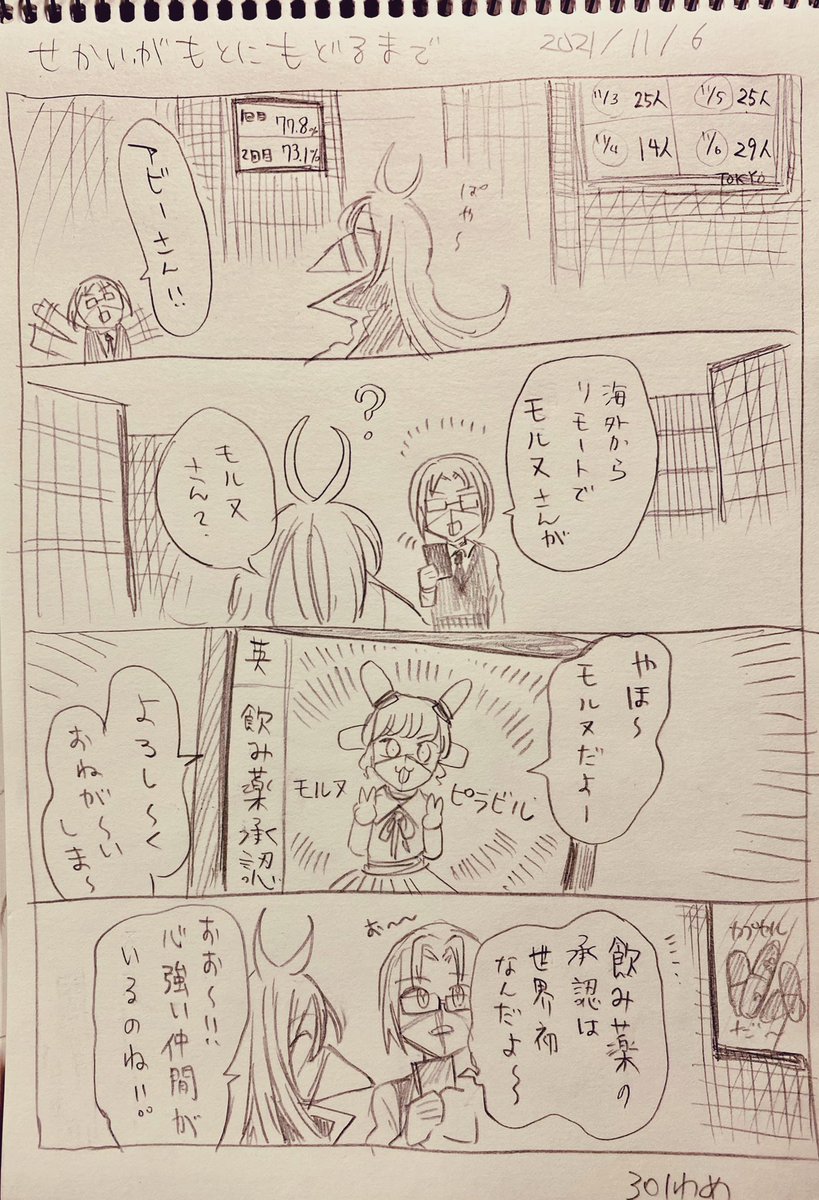 せかいがもとにもどるまで
2021/11/6
11/3 25人
11/5 25人
11/4 14人
11/6 29人
TOKYO
1回目 77.8%
2回目 73.1%
ぱや～
アビーさん!!
海外から
リモートで
モルヌさんが
?
モルヌ
さん?
やほ～
モルヌだよー
英 飲み薬承認
モルヌ
ピラビル
よろし～くー
おねが～い
しま～
カプセル
だー
飲み薬の
承認は
世界初
なんだよ～
お～～
おお～!!
心強い仲間が
いるのね!!
301わめ